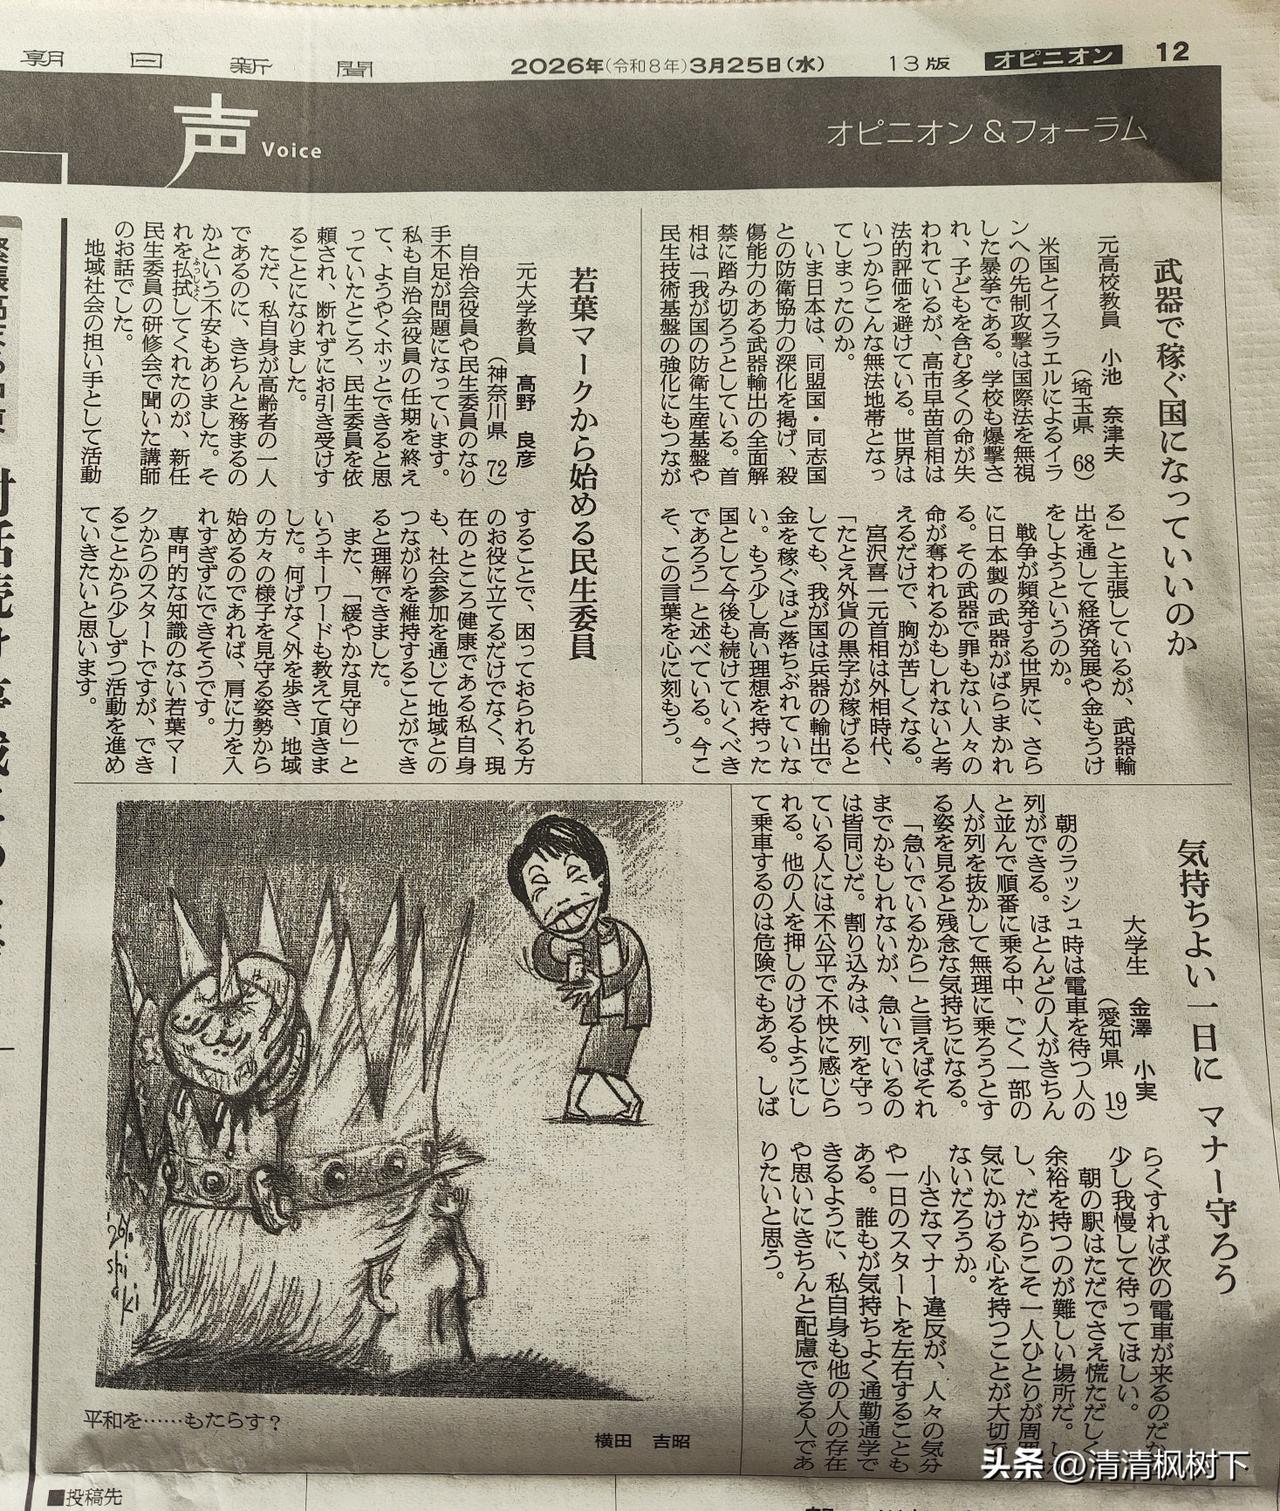 朝日新聞
2026年(令和8年)3月25日(水)
13版
オピニオン
12
声
Voice
オピニオン&フォーラム
武器で稼ぐ国になっていいのか
元高校教員 小池 奈津夫
(埼玉県 68)
米国とイスラエルによるイラ
ンへの先制攻撃は国際法を無視
した暴挙である。学校も爆撃さ
れ、子どもを含む多くの命が失
われているが、高市早苗首相は
法的評価を避けている。世界は
いつからこんな無法地帯となっ
てしまったのか。
いま日本は、同盟国・同志国
との防衛協力の深化を掲げ、殺
傷能力のある武器輸出の全面解
禁に踏み切ろうとしている。首
相は「我が国の防衛生産基盤や
民生技術基盤の強化にもつなが
る」と主張しているが、武器輸
出を通して経済発展や金もうけ
をしようというのか。
戦争が頻発する世界に、さら
に日本製の武器がばらまかれ
る。その武器で罪もない人々の
命が奪われるかもしれないと考
えるだけで、胸が苦しくなる。
宮沢喜一元首相は外相時代、
「たとえ外貨の黒字が稼げると
しても、我が国は兵器の輸出で
金を稼ぐほど落ちぶれていな
い。もう少し高い理想を持った
国として今後も続けていくべき
であろう」と述べている。今こ
そ、この言葉を心に刻もう。
若葉マークから始める民生委員
元大学教員 高野 良彦
(神奈川県 72)
自治会役員や民生委員のなり
手不足が問題になっています。
私も自治会役員の任期を終え
て、ようやくホッとできると思
っていたところ、民生委員を依
頼され、断れずにお引き受けす
ることになりました。
ただ、私自身が高齢者の一人
であるのに、きちんと務まるの
かという不安もありました。そ
れを払拭してくれたのが、新任
ふっしょく
民生委員の研修会で聞いた講師
のお話でした。
地域社会の担い手として活動
することで、困っておられる方
のお役に立てるだけでなく、現
在のところ健康である私自身
も、社会参加を通じて地域との
つながりを維持することができ
ると理解できました。
また、「緩やかな見守り」と
いうキーワードも教えて頂きま
した。何げなく外を歩き、地域
の方々の様子を見守る姿勢から
始めるのであれば、肩に力を入
れすぎずにできそうです。
専門的な知識のない若葉マー
クからのスタートですが、でき
ることから少しずつ活動を進め
ていきたいと思います。
気持ちよい一日に マナー守ろう
大学生 金澤 小実
(愛知県 19)
朝のラッシュ時は電車を待つ人の
列ができる。ほとんどの人がきちん
と並んで順番に乗る中、ごく一部の
人が列を抜かして無理に乗ろうとす
る姿を見ると残念な気持ちになる。
「急いでいるから」と言えばそれ
までかもしれないが、急いでいるの
は皆同じだ。割り込みは、列を守っ
ている人には不公平で不快に感じら
れる。他の人を押しのけるようにし
て乗車するのは危険でもある。しば
らくすれば次の電車が来るのだか
少し我慢して待ってほしい。
朝の駅はただでさえ慌ただしく
余裕を持つのが難しい場所だ。
し、だからこそ一人ひとりが周囲
気にかける心を持つことが大切で
ないだろうか。
小さなマナー違反が、人々の気分
や一日のスタートを左右することも
ある。誰もが気持ちよく通勤通学で
きるように、私自身も他の人の存在
や思いにきちんと配慮できる人であ
りたいと思う。
'26
shi
aki
平和を……もたらす?
横田 吉昭
■投稿先
头条 @清清枫树下